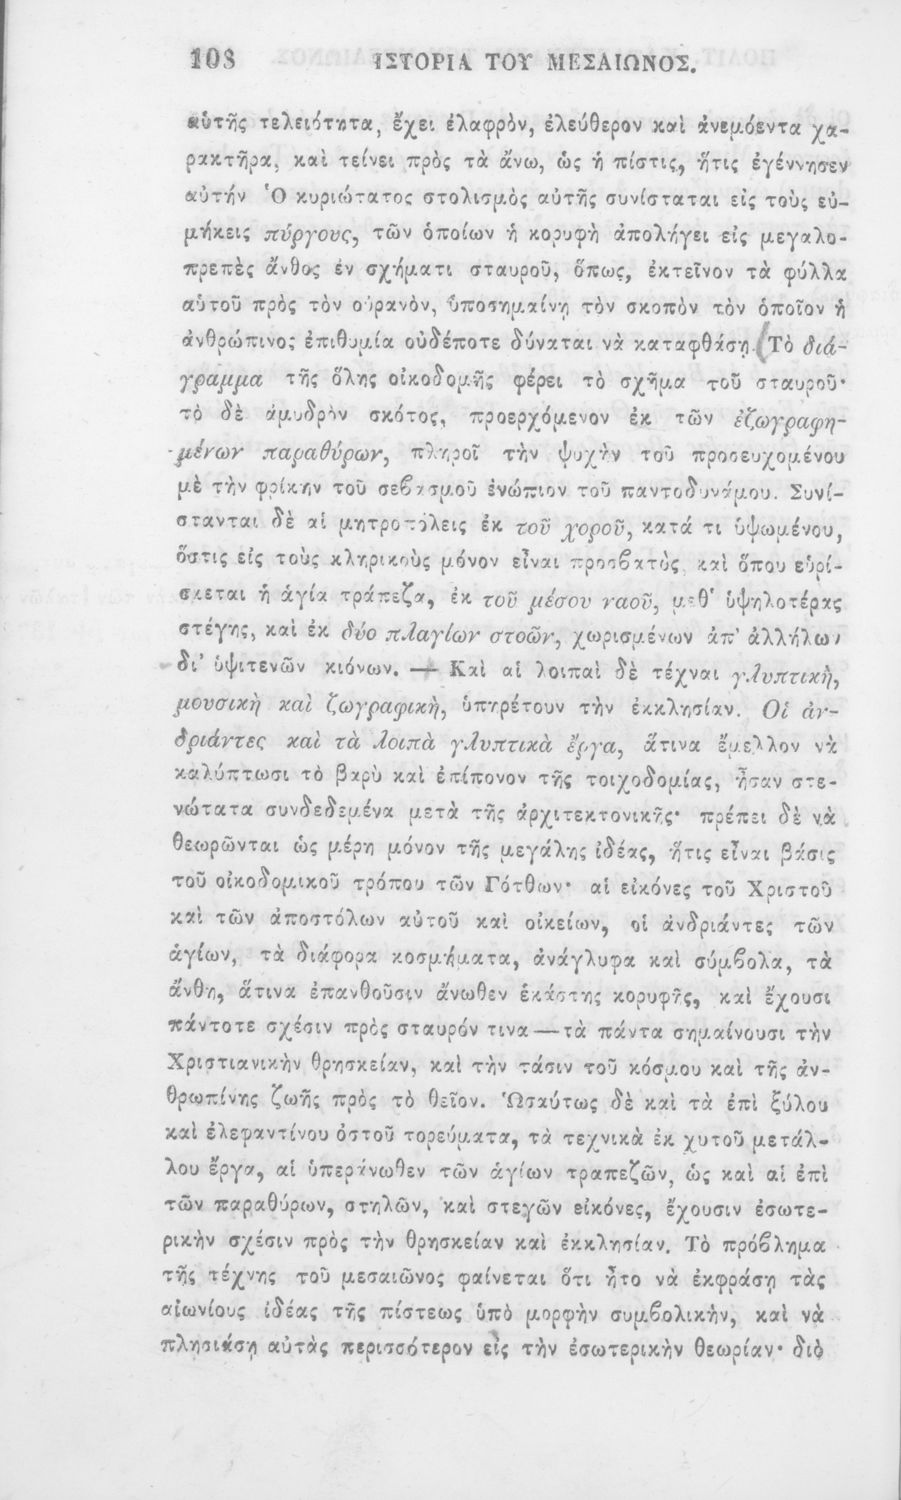 108 ΙΣΤΟΡΙΑ ΤΟΥ ΜΕΣΑΙΩΝΟΣ.
αὑτῆς τελειότητα, ἔχει ἐλαφρὸν, ἐλεύθερον καὶ ἀνεμόεντα χα-
ρακτῆρα, καὶ τείνει πρὸς τὰ ἄνω, ὡς ἡ πίστις, ἥτις ἐγέννησεν
αὐτήν Ὁ κυριώτατος στολισμὸς αὐτῆς συνίσταται εἰς τοὺς εὐ-
μήκεις πύργους, τῶν ὁποίων ἡ κορυφὴ ἀπολήγει εἰς μεγαλο-
πρεπὲς ἄνθος ἐν σχήματι σταυροῦ, ὅπως, ἐκτεῖνον τὰ φύλλα
αὑτοῦ πρὸς τὸν οὐρανὸν, ὑποσημαίνῃ τὸν σκοπὸν τὸν ὁποῖον ἡ
ἀνθρώπινος ἐπιθυμία οὐδέποτε δύναται νὰ καταφθάσῃ. Τὸ διά-
γραμμα τῆς ὅλης οἰκοδομῆς φέρει τὸ σχῆμα τοῦ σταυροῦ·
τὸ δὲ ἀμυδρὸν σκότος, προερχόμενον ἐκ τῶν ἐζωγραφη-
μένων παραθύρων, πληροῖ τὴν ψυχὴν τοῦ προσευχομένου
μὲ τὴν φρίκην τοῦ σεβασμοῦ ἐνώπιον τοῦ παντοδυνάμου. Συνί-
στανται δὲ αἱ μητροπόλεις ἐκ τοῦ χοροῦ, κατά τι ὑψωμένου,
ὅστις εἰς τοὺς κληρικοὺς μόνον εἶναι προσβατὸς καὶ ὅπου εὑρί-
σκεται ἡ ἁγία τράπεζα, ἐκ τοῦ μέσου ναοῦ, μεθ' ὑψηλοτέρας
στέγης, καὶ ἐκ δύο πλαγίων στοῶν, χωρισμένων ἀπ' ἀλλήλων
δι' ὑψιτενῶν κιόνων. — Καὶ αἱ λοιπαὶ δὲ τέχναι γλυπτικὴ,
μουσικὴ καὶ ζωγραφικὴ, ὑπηρέτουν τὴν ἐκκλησίαν. Οἱ ἀν-
δριάντες καὶ τὰ λοιπὰ γλυπτικὰ ἔργα, ἅτινα ἔμελλον νὰ
καλύπτωσι τὸ βαρὺ καὶ ἐπίπονον τῆς τοιχοδομίας, ἦσαν στε-
νώτατα συνδεδεμένα μετὰ τῆς ἀρχιτεκτονικῆς· πρέπει δὲ νὰ
θεωρῶνται ὡς μέρη μόνον τῆς μεγάλης ἰδέας, ἥτις εἶναι βάσις
τοῦ οἰκοδομικοῦ τρόπου τῶν Γότθων· αἱ εἰκόνες τοῦ Χριστοῦ
καὶ τῶν ἀποστόλων αὐτοῦ καὶ οἰκείων, οἱ ἀνδριάντες τῶν
ἁγίων, τὰ διάφορα κοσμήματα, ἀνάγλυφα καὶ σύμβολα, τὰ
ἄνθη, ἅτινα ἐπανθοῦσιν ἄνωθεν ἑκάστης κορυφῆς, καὶ ἔχουσι
πάντοτε σχέσιν πρὸς σταυρόν τινα — τὰ πάντα σημαίνουσι τὴν
Χριστιανικὴν θρησκείαν, καὶ τὴν τάσιν τοῦ κόσμου καὶ τῆς ἀν-
θρωπίνης ζωῆς πρὸς τὸ θεῖον. Ὡσαύτως δὲ καὶ τὰ ἐπὶ ξύλου
καὶ ἐλεφαντίνου ὀστοῦ τορεύματα, τὰ τεχνικὰ ἐκ χυτοῦ μετάλ-
λου ἔργα, αἱ ὑπεράνωθεν τῶν ἁγίων τραπεζῶν, ὡς καὶ αἱ ἐπὶ
τῶν παραθύρων, στηλῶν, καὶ στεγῶν εἰκόνες, ἔχουσιν ἐσωτε-
ρικὴν σχέσιν πρὸς τὴν θρησκείαν καὶ ἐκκλησίαν. Τὸ πρόβλημα
τῆς τέχνης τοῦ μεσαιῶνος φαίνεται ὅτι ἦτο νὰ ἐκφράσῃ τὰς
αἰωνίους ἰδέας τῆς πίστεως ὑπὸ μορφὴν συμβολικὴν, καὶ νὰ
πλησιάσῃ αὐτὰς περισσότερον εἰς τὴν ἐσωτερικὴν θεωρίαν· διὸ